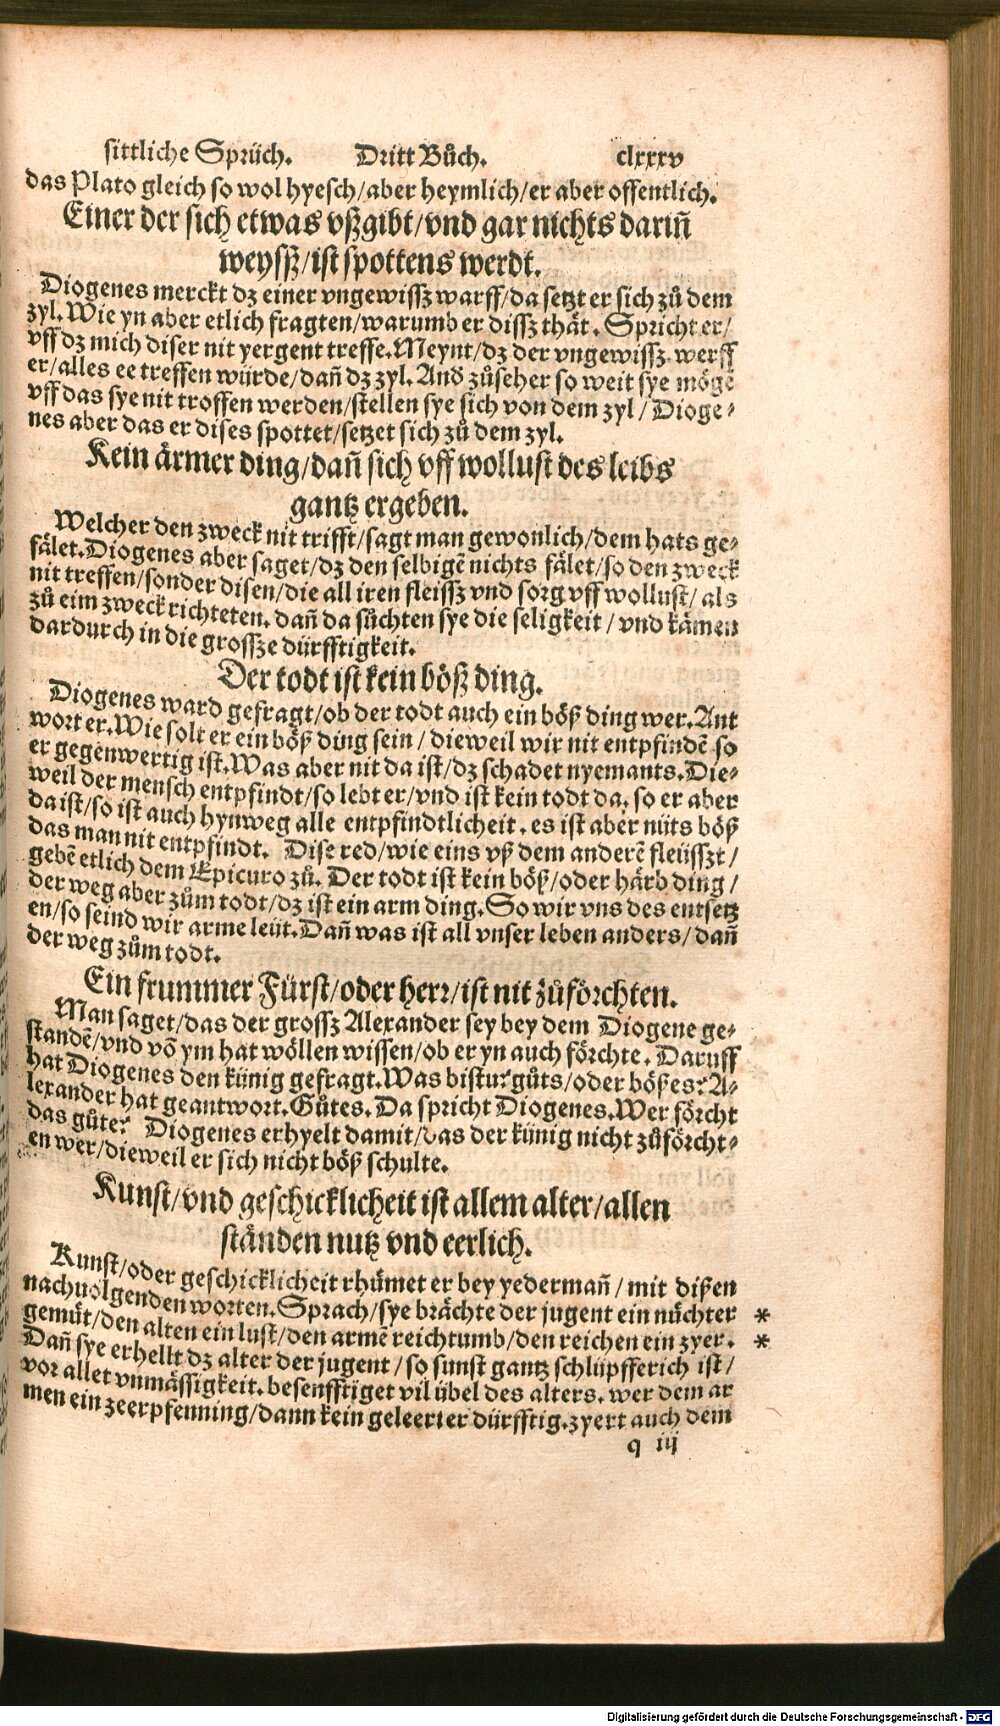 sittliche Sprüch. Dritt Bůch. clxxxv
das Plato gleich so wol hyesch/aber heymlich/er aber offentlich.
Einer der sich etwas vßgibt/vnd gar nichts dariñ
weyſß/ist spottens werdt.
Diogenes merckt dz einer vngewissz warff/da setzt er sich zů dem
zyl. Wie yn aber etlich fragten/warumb er dissz thät. Spricht er/
vff dz mich diser nit yergent treffe. Meynt/dz der vngewissz werff
er/alles ee treffen würde/dañ dz zyl. And zůseher so weit sye mögē
vff das sye nit troffen werden/stellen sye sich von dem zyl/Dioge⸗
nes aber das er dises spottet/setzet sich zů dem zyl.
Kein ärmer ding/dañ sich vff wollust des leibs
gantz ergeben.
Welcher den zweck nit trifft/sagt man gewonlich/dem hats ge⸗
fälet. Diogenes aber saget/dz den selbigē nichts fälet/so den zweck
nit treffen/sonder disen/die all iren fleissz vnd sorg vff wollust/als
zů eim zweck richteten. dañ da sůchten sye die seligkeit/vnd kämen
dardurch in die grossze dürfftigkeit.
Der todt ist kein böß ding.
Diogenes ward gefragt/ob der todt auch ein böß ding wer. Ant
wort er. Wie solt er ein böß ding sein/dieweil wir nit entpfindē so
er gegenwertig ist. Was aber nit da ist/dz schadet nyemants. Die⸗
weil der mensch entpfindt/so lebt er/vnd ist kein todt da. so er aber
da ist/so ist auch hynweg alle entpfindtlicheit. es ist aber nüts böß
das man nit entpfindt. Dise red/wie eins vß dem anderē fleüsszt/
gebē etlich dem Epicuro zů. Der todt ist kein böß/oder härb ding/
der weg aber zům todt/dz ist ein arm ding. So wir vns des entsetz
en/so seind wir arme leüt. Dañ was ist all vnser leben anders/dañ
der weg zům todt.
Ein frummer Fürst/oder herr/ist nit zůförchten.
Man saget/das der grossz Alexander sey bey dem Diogene ge⸗
standē/vnd võ ym hat wöllen wissen/ob er yn auch förchte. Daruff
hat Diogenes den künig gefragt. Was bistu? gůts/oder bößes? A⸗
lexander hat geantwort. Gůtes. Da spricht Diogenes. Wer förcht
das gůte? Diogenes erhyelt damit/das der künig nicht zůförcht⸗
en wer/dieweil er sich nicht böß schulte.
Kunst/vnd geschicklicheit ist allem alter/allen
ständen nutz vnd eerlich.
Kunst/oder geschicklicheit rhümet er bey yedermañ/mit dißen
nachuolgenden worten. Sprach/sye brächte der jugent ein nüchter *
gemüt/den alten ein lust/den armē reichtumb/den reichen ein zyer. *
Dañ sye erhellt dz alter der jugent/so sunst gantz schlüpfferich ist/
vor allet vnmässigkeit. besenfftiget vil übel des alters. wer dem ar
men ein zeerpfenning/dann kein geleerter dürfftig. zyert auch dem
q iij
Digitalisierung gefördert durch die Deutsche Forschungsgemeinschaft - DFG